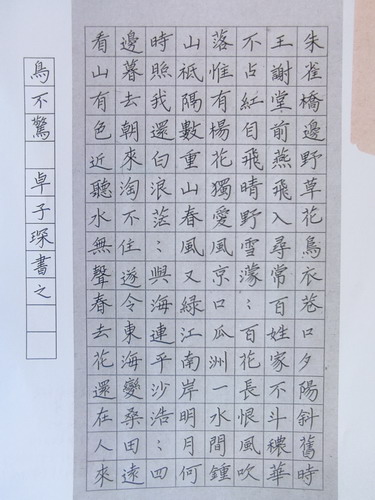 朱雀橋邊野草花烏衣巷口夕陽斜舊時
王謝堂前燕飛入尋常百姓家不斗穠華
不占紅目飛晴野雪濛:百花長恨風吹
落惟有楊花獨愛風京口瓜洲一水間鍾
山祗隔數重山春風又綠江南岸明月何
時照我還白浪茫:與海連平沙浩:四
邊暮去朝來淘不住遂令東海變桑田遠
看山有色近聽水無聲春去花還在人來
鳥不驚 卓子琛書之